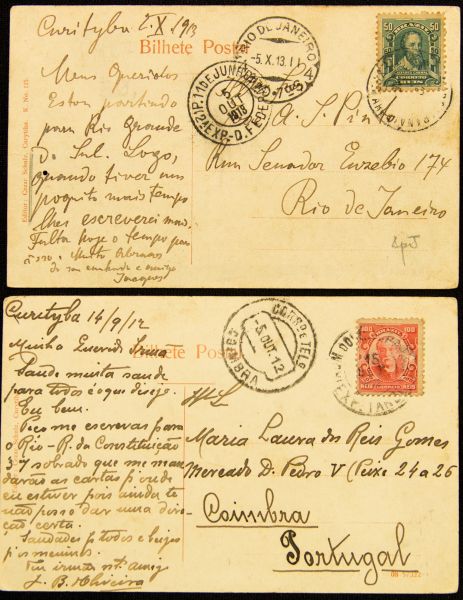 Curityba 2.X.1913
Bilhete Postal
RIO DE JANEIRO
-5.X.13.11
50 50
BRAZIL
REIS
Meus Queridos
Estou partindo
para Rio Grande
do Sul. Logo,
quando tiver um
poquito mais tempo
lhes escreverei mais.
Falta hoje o tempo para
isso. Muito abraços
Jacques
5
OUT
1913
A. S. Pin
Rua Senador Euzebio 174
Rio de Janeiro
Editor: Cesar Schulz, Curityba
N. No. 125
Curityba 14/9/12
Minha Querida Irmã
Bilhete Postal
COIMBRA
CORRO E TELO
5 OUT 12
100 100
BRAZIL
REIS
15
Saude muita saude
para todos é o que dezejo.
Eu bem.
Peço me escrevas para
o Rio-R. da Constituição
37 sobrado que me man
darão as cartas p'onde
eu estiver pois ainda te
não posso dar uma dire
cão certa.
Saudades p' todos e beijos
p'os meninos.
Teu irmão mt. amigo
J. B. Oliveira
Maria Laura dos Reis Gomes
Mercado D. Pedro V (Peixe 24 a 26
Coimbra
Portugal